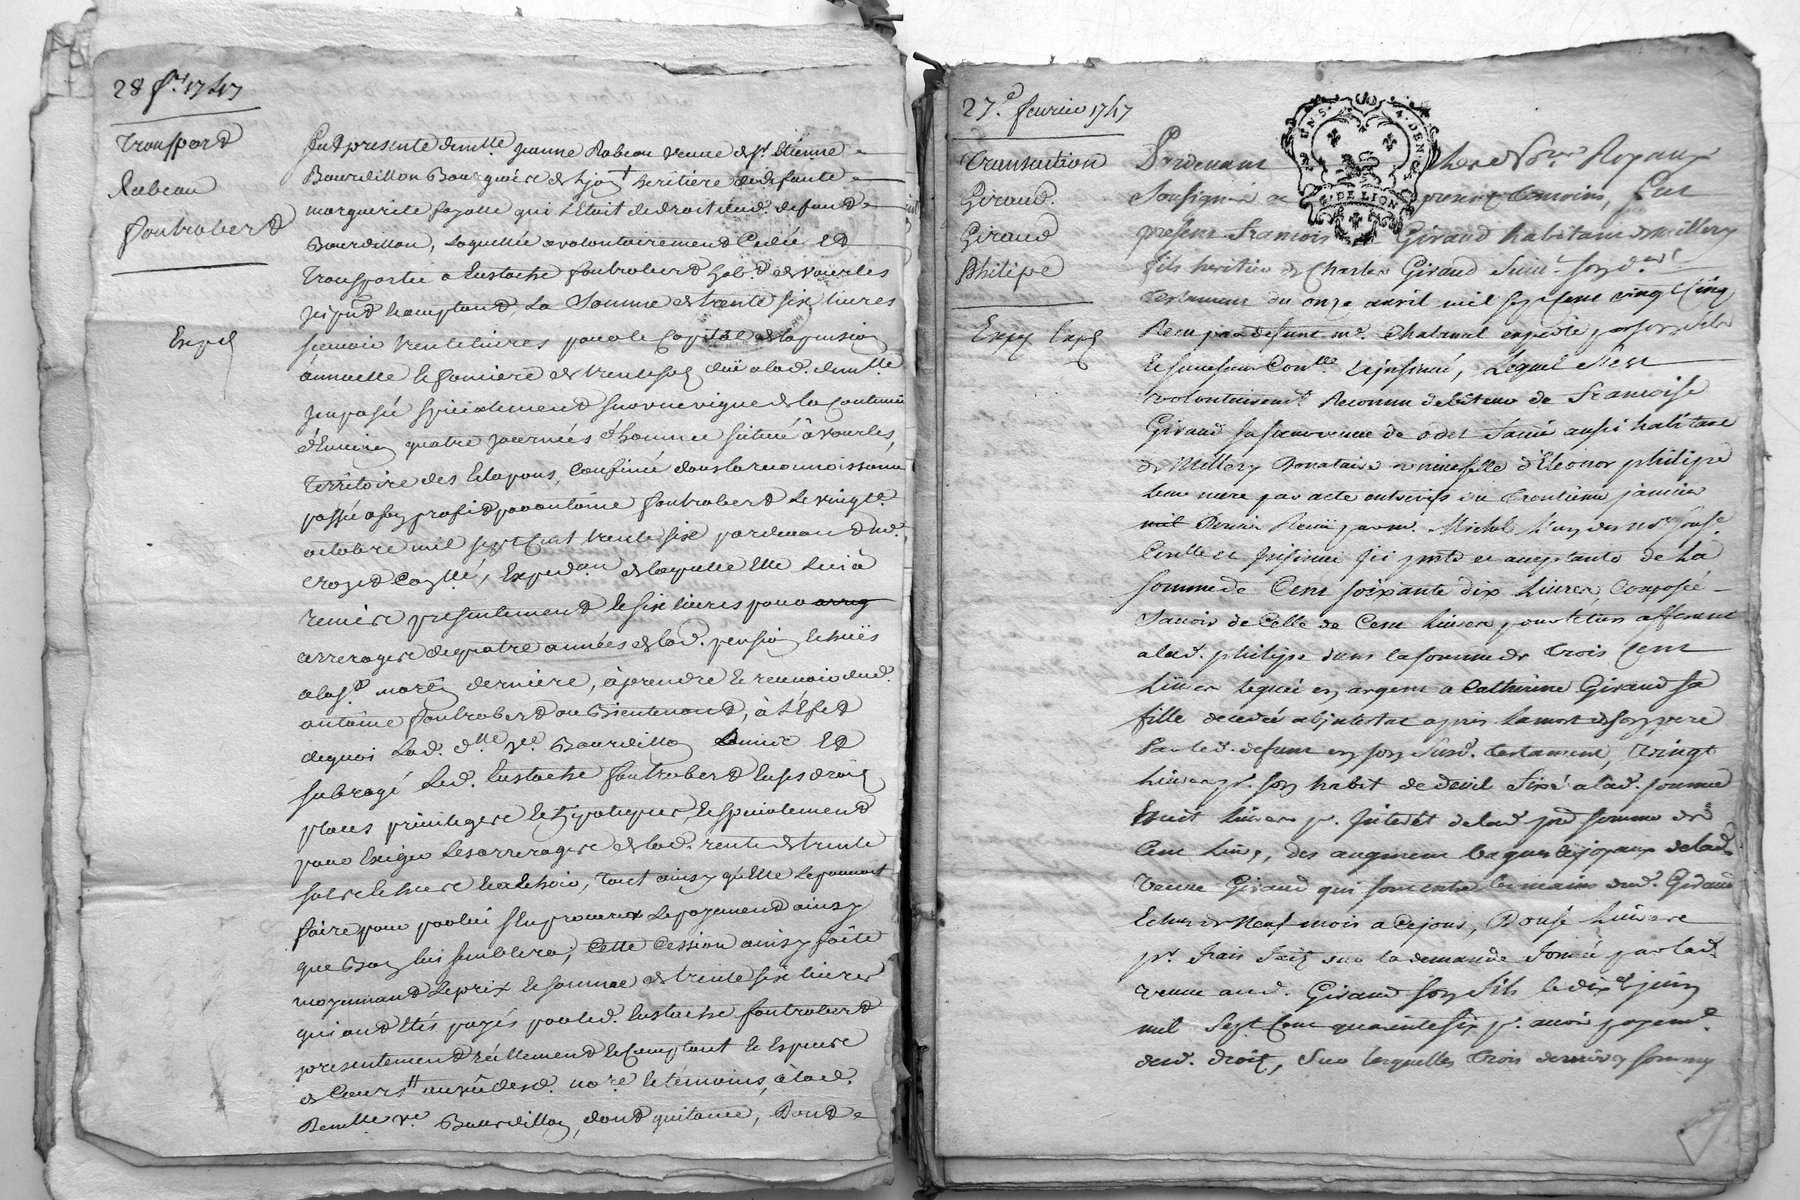 28 fr. 1747
Transpord
Rabeau
fontrobert
Exped
Fut presente demlle. Jeanne Rabeau veuve de Sr. Etienne
Bourdillon Bourgeoise de Lyon heritiere de defunte
marguerite fayolle qui L'etoit de droit dud. defund
Bourdillon, Laquelle a volontairement Cedée Et
Transportée a Eustache fontrobert hab.d de vourles
present Comptand, La Somme de trente six livres
scavoir trente livres pour le Capital de la pension
annuelle et fonciere de trente sols düe a lad. demlle
imposée specialement sur une vigne de la Contenue
d'Environ quatre journées d'homme située à vourles,
Territoire des Clapons, Confinée dans la reconnoissance
passée a son profid par antoine fontrobert Le vingt
octobre mil sept Cent trente six pardevand me.
, Expedon de laquelle Elle Lui a
remise presentement et six livres pour arrag
arrerages de quatre années de lad. pension Echües
a la St martin derniere, à prendre et recevoir dud.
antoine fontrobert ou Bientenand, à L'Efet
de quoi Lad. dlle ve Bourdillon a mis Et
subrogé Led. Eustache fontrobert En ses droits
places privileges et hypoteques, et specialement
pour Exiger Les arrerages de lad. rente de trente
sols Echus et a Echoir, Tout ainsy qu'Elle Le pouvoit
faire pour par lui s'En procurer Le payement ainsy
que Bon lui semblera; Cette Cession ainsy faite
moyennand Le prix et somme de trente six livres
qui ont Etés payés par led. Eustache fontrobert
presentement réellement et Comptant En Espece
de Cours au vû desd. nore et temoins, à lad.
Demlle ve Bourdillon, dond quitance, Dond
27e. fevrier 1747
Transaction
Giraud.
Giraud
Philipe
Exped Exped
G. DE LION
Pardevant les Nores Royaux
Soussigné et presents temoins, fut
présent Francois Giraud habitant de Millery
fils heritier de Charles Giraud suivt. son der.
testament du onze avril mil sept cent vingt Cinq
Recu par defunt me. Chatanel expedié par
et son successeur Conlle. et insinué, Lequel s'est
volontairemt. Reconnu debiteur de Francoise
Giraud sa soeur veuve de odet Sanié aussi habitante
de Millery Donataise universelle d'Eleonor philipe
leur mere par acte entrevifs du trentieme janvier
mil Dernier Recu par me. Michel l'un des nores. souse.
Conlle et insinué ici pnte et acceptante de La
somme de Cent soixante dix Livres, Composée
Scavoir de Celle de Cent Livres pour le tiers afferent
a lad. philipe dans la somme de trois Cent
Livres leguée en argent a Catherine Giraud sa
fille decedée abjntestat apres la mort de son pere
Par led. defunt en son susd. testament, vingt
Livres pr. son habit de deuil fixé a lad. somme
huit Livres pr. Interêt de lad. pre somme de
Cent Livs, des augment bagues et joyaux de lad.
Veuve Giraud qui sont entre les mains dud. Giraud
Echus de Neuf mois a Cejour, Douse Livres
pr. frais faits sur la demande formée par lad.
veuve aud. Giraud son fils le dix et juin
mil Sept Cent quarente six pr. avoir payemt.
desd. droits, Sur lesquelles trois dernieres sommes